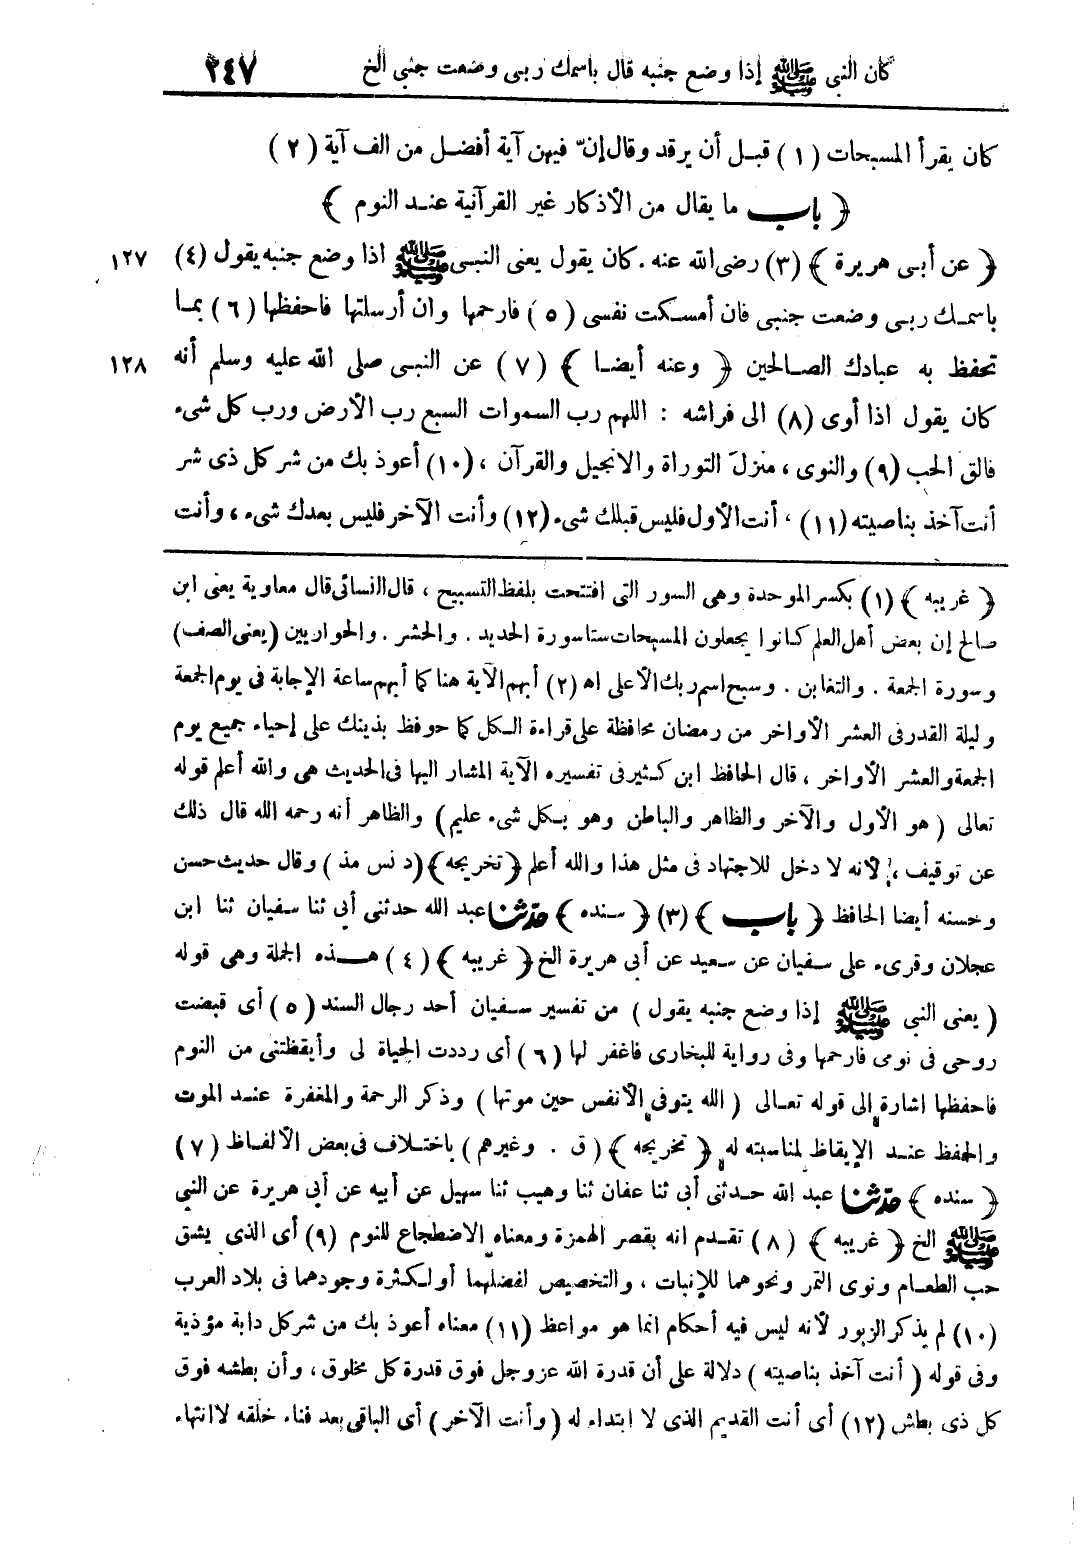 كان النبى ﷺ إذا وضع جنبه قال باسمك ربى وضعت جنبى الخ ٢٤٧
كان يقرأ المسبحات (١) قبل أن يرقد وقال إنّ فيهن آية أفضل من الف آية (٢)
﴿ باب ما يقال من الأذكار غير القرآنية عند النوم ﴾
﴿ عن أبى هريرة ﴾ (٣) رضى الله عنه . كان يقول يعنى النبى ﷺ اذا وضع جنبه يقول (٤) ١٢٧
باسمك ربى وضعت جنبى فان أمسكت نفسى (٥) فارحمها وان أرسلتها فاحفظها (٦) بما
تحفظ به عبادك الصالحين ﴿ وعنه أيضا ﴾ (٧) عن النبى صلى الله عليه وسلم أنه ١٢٨
كان يقول اذا أوى (٨) الى فراشه : اللهم رب السموات السبع رب الأرض ورب كل شىء
فالق الحب (٩) والنوى ، منزلَ التوراة والانجيل والقرآن ، (١٠) أعوذ بك من شر كل ذى شر
أنت آخذ بناصيته (١١) ، أنت الأول فليس قبلك شىء (١٢) وأنت الآخر فليس بعدك شىء ، وأنت
﴿ غريبه ﴾ (١) بكسر الموحدة وهى السور التى افتتحت بلفظ التسبيح ، قال النسائى قال معاوية يعنى ابن
صالح إن بعض أهل العلم كانوا يجعلون المسبحات ستا سورة الحديد . والحشر . والحواريين (يعنى الصف)
وسورة الجمعة . والتغابن . وسبح اسم ربك الأعلى اه (٢) أبهم الآية هنا كما أبهم ساعة الإجابة فى يوم الجمعة
وليلة القدر فى العشر الأواخر من رمضان محافظة على قراءة الكل كما حوفظ بذينك على إحياء جميع يوم
الجمعة والعشر الأواخر ، قال الحافظ ابن كثير فى تفسيره الآية المشار اليها فى الحديث هى والله أعلم قوله
تعالى ( هو الأول والآخر والظاهر والباطن وهو بكل شىء عليم ) والظاهر أنه رحمه الله قال ذلك
عن توقيف ، لأنه لا دخل للاجتهاد فى مثل هذا والله أعلم ﴿ تخريجه ﴾ (د نس مذ) وقال حديث حسن
وحسنه أيضا الحافظ ﴿ باب ﴾ (٣) ﴿ سنده ﴾ حدّثنا عبد الله حدثنى أبى ثنا سفيان ثنا ابن
عجلان وقرىء على سفيان عن سعيد عن أبى هريرة الخ ﴿ غريبه ﴾ (٤) هذه الجملة وهى قوله
( يعنى النبى ﷺ إذا وضع جنبه يقول ) من تفسير سفيان أحد رجال السند (٥) أى قبضت
روحى فى نومى فارحمها وفى رواية للبخارى فاغفر لها (٦) أى رددت الحياة لى وأيقظتنى من النوم
فاحفظها اشارة الى قوله تعالى ( الله يتوفى الأنفس حين موتها ) وذكر الرحمة والمغفرة عند الموت
والحفظ عند الإيقاظ لمناسبته له ﴿ تخريجه ﴾ (ق . وغيرهم) باختلاف فى بعض الألفاظ (٧)
﴿ سنده ﴾ حدّثنا عبد الله حدثنى أبى ثنا عفان ثنا وهيب ثنا سهيل عن أبيه عن أبى هريرة عن النبى
ﷺ الخ ﴿ غريبه ﴾ (٨) تقدم انه بقصر الهمزة ومعناه الاضطجاع للنوم (٩) أى الذى يشق
حب الطعام ونوى التمر ونحوهما للإنبات ، والتخصيص لفضلهما أو لكثرة وجودهما فى بلاد العرب
(١٠) لم يذكر الزبور لأنه ليس فيه أحكام انما هو مواعظ (١١) معناه أعوذ بك من شر كل دابة مؤذية
وفى قوله ( أنت آخذ بناصيته ) دلالة على أن قدرة الله عز وجل فوق قدرة كل مخلوق ، وأن بطشه فوق
كل ذى بطاش (١٢) أى أنت القديم الذى لا ابتداء له ( وأنت الآخر ) أى الباقى بعد فناء خلقه لا انتهاء